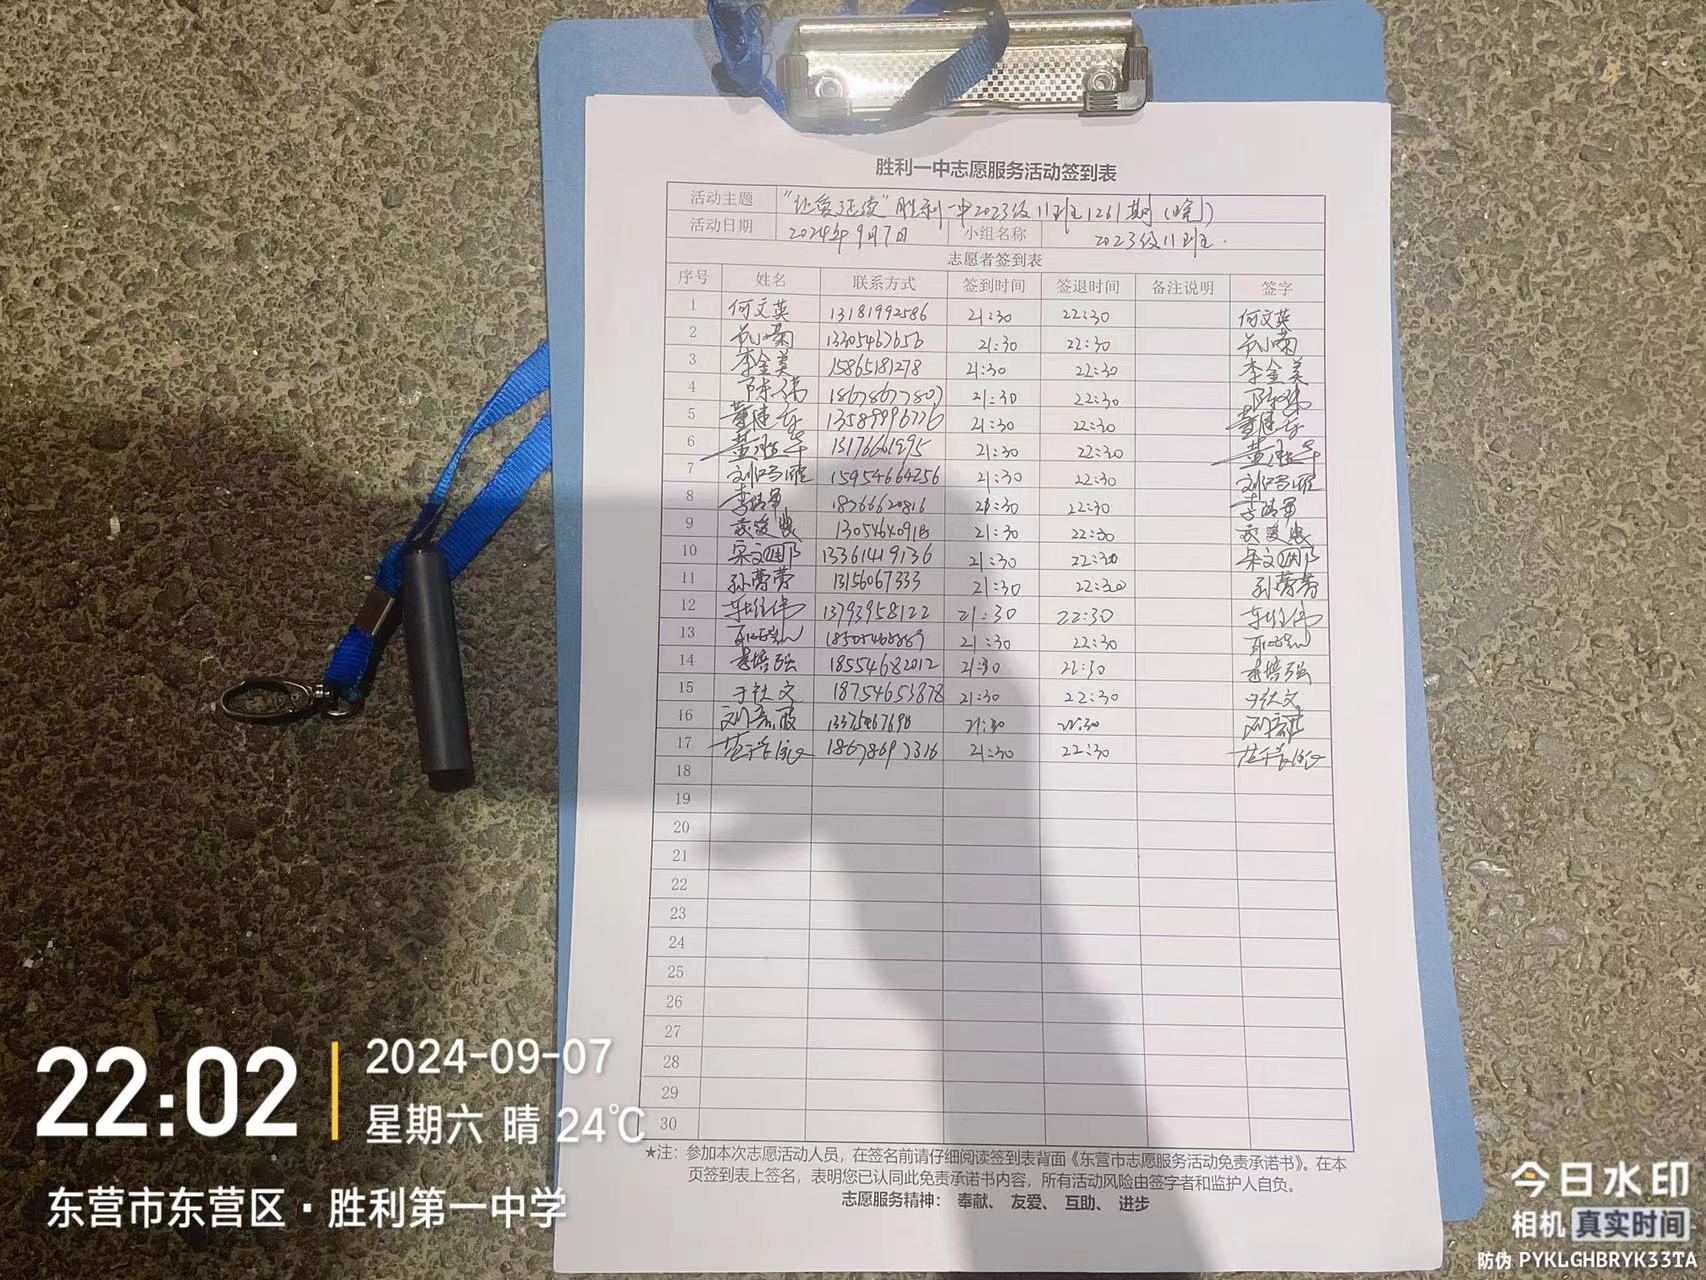 胜利一中志愿服务活动签到表
活动主题 "让爱延续"胜利一中2023级11班1261期(晚)
活动日期 2024年9月7日 小组名称 2023级11班.
志愿者签到表
序号 姓名 联系方式 签到时间 签退时间 备注说明 签字
1 何文英 13181992586 21:30 22:30 何文英
2 13305467656 21:30 22:30
3 李金美 15865181278 21:30 22:30 李金美
4 陈伟 18678677807 21:30 22:30 陈伟
5 董健东 13589996776 21:30 22:30 董健东
6 15176661295 21:30 22:30
7 15954664256 21:30 22:30
8 18266620816 21:30 22:30
9 21:30 22:30
10 13361419136 21:30 22:30
11 孙蕾蕾 13156067333 21:30 22:30 孙蕾蕾
12 13793958122 21:30 22:30
13 21:30 22:30
14 李培强 18554682012 21:30 22:30 李培强
15 于社文 18754653878 21:30 22:30 于社文
16 21:30 22:30
17 18678697316 21:30 22:30
18
19
20
21
22
23
24
25
26
27
28
29
30
★注：参加本次志愿活动人员，在签名前请仔细阅读签到表背面《东营市志愿服务活动免责承诺书》。在本
页签到表上签名，表明您已认同此免责承诺书内容，所有活动风险由签字者和监护人自负。
志愿服务精神： 奉献、 友爱、 互助、 进步
22:02
2024-09-07
星期六 晴 24℃
东营市东营区·胜利第一中学
今日水印
相机 真实时间
防伪 PYKLGHBRYK33TA